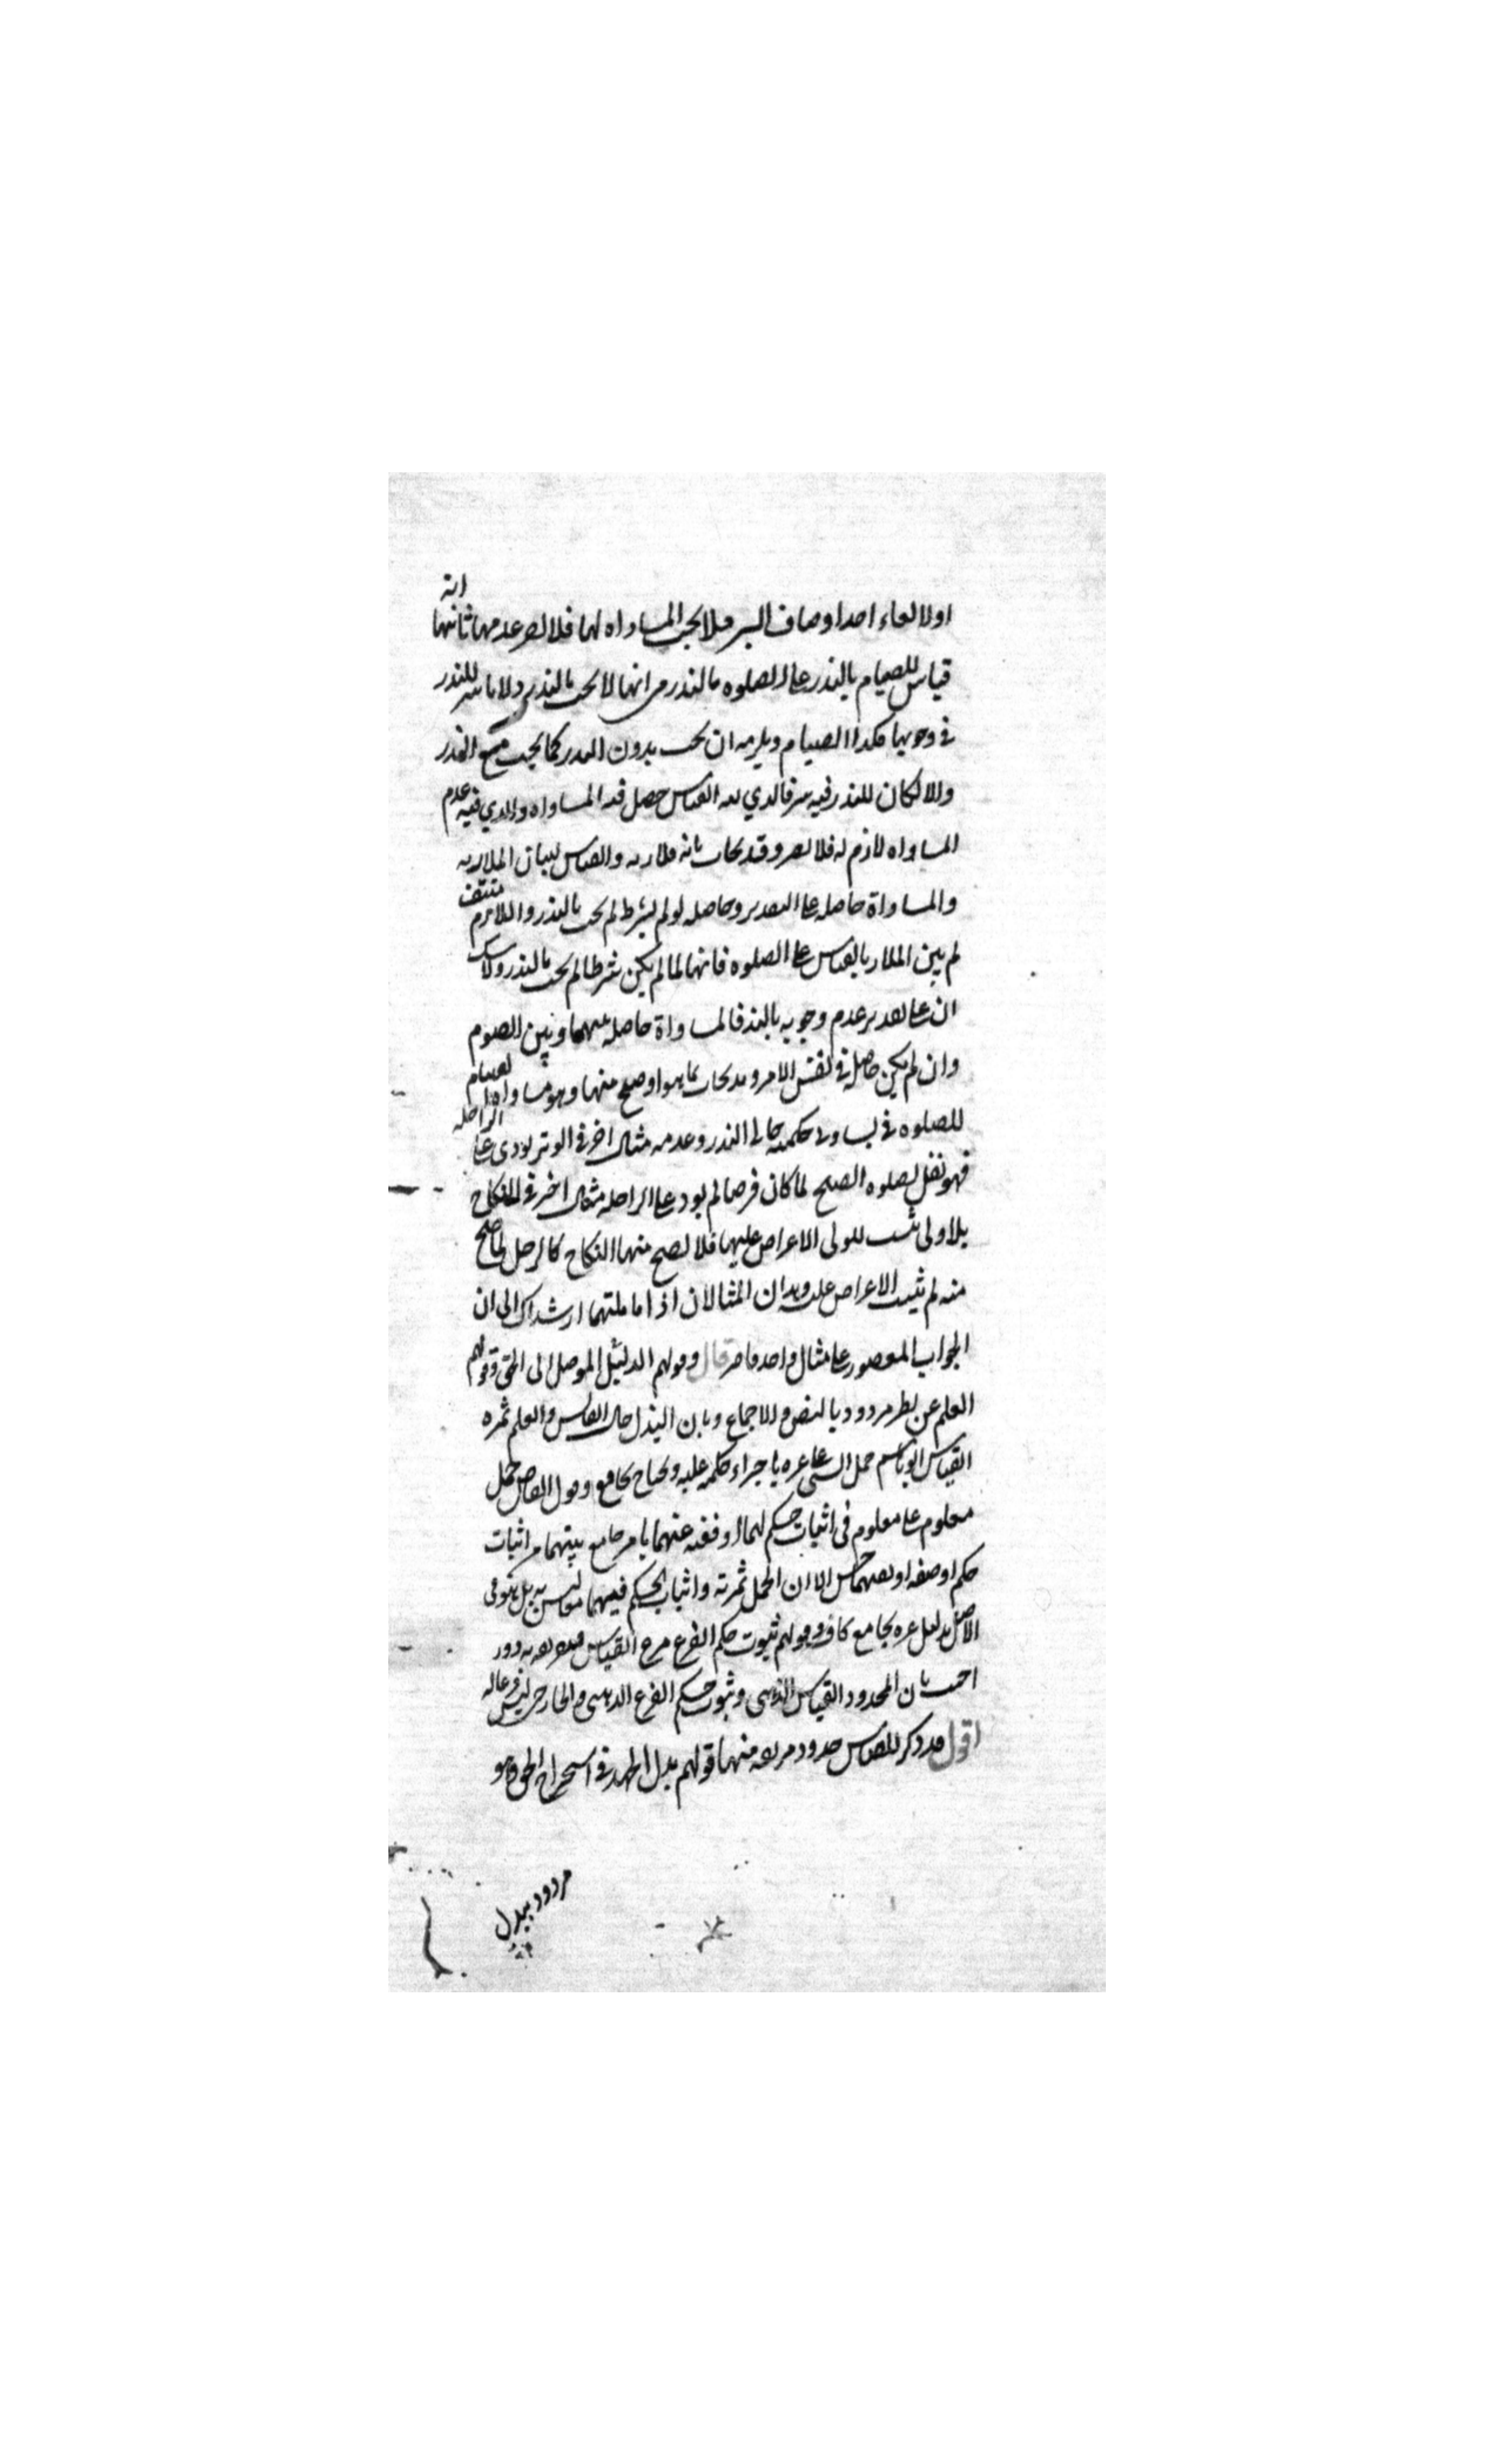 انه
اولا لغاء احد اوصاف السبر فلا يجب المساواه لها فلا يضر عدمها ثانيها
قياس للصيام بالنذر على الصلوه بالنذر من انها لا يجب بالنذر ولا تاثير للنذر
في وجوبها فكذا الصيام ويلزمه ان يجب بدون النذر كما يجب مع النذر
والا لكان للنذر فيه فالذي القياس حصل فيه المساواه والذي فيه عدم
المساواه لازم له فلا يضر وقد يجاب بانه ملازمه والقياس لبيان الملازمه
والمساواة حاصله على التقدير وحاصله لو لم يشترط لم يجب بالنذر واللازم منتف
ثم بين الملازمه بالقياس على الصلوه فانها لما لم يكن شرطا لم يجب بالنذر ولا شك
ان على تقدير عدم وجوبه بالنذر فالمساواة حاصله بينها وبين الصوم
وان لم يكن حاصل في نفس الامر وقد يجاب بما هو اوضح منها وهو مساواه الصيام
للصلوه في تساوي حكمه حالى النذر وعدمه مثال اخر في الوتر يودى على الراحله
فهو نفل لصلوه الصبح لما كان فرضا لم يود على الراحله مثال اخر في النكاح
بلا ولى يثبت للولى الاعراض عليها فلا يصح منها النكاح كالرجل لما صح
منه لم يثبت الاعراض عليه وهذان المثالان اذا املتهما ارشداك الى ان
الجواب المقصور على مثال واحد قاصر قال وقولهم الدليل الموصل الى الحق وقولهم
العلم عن نظر مردود بالنص والاجماع وبان البذل حال القايس والعلم ثمره
القياس ابو هاشم حمل الشى على غيره باجراء حكمه عليه ويحتاج بجامع وقول القاضى حمل
معلوم على معلوم فى اثبات حكم لهما او نفيه عنهما بامر جامع بينهما من اثبات
حكم او صفه او نفيهما حسن الا ان الحمل ثمرته واثبات الحكم فيهما ليس به بل هو فى
الاصل بدليل غيره بجامع كاف وقولهم ثبوت حكم الفرع فرع القياس فتعريفه به دور
اجيب بان المحدود القياس الذهنى وثبوت حكم الفرع الذهنى والخارجى ليس فرعا له
اقول قد ذكر للقياس حدود مزيفه منها قولهم بذل الجهد في استخراج الحق وهو
مردود ببذل